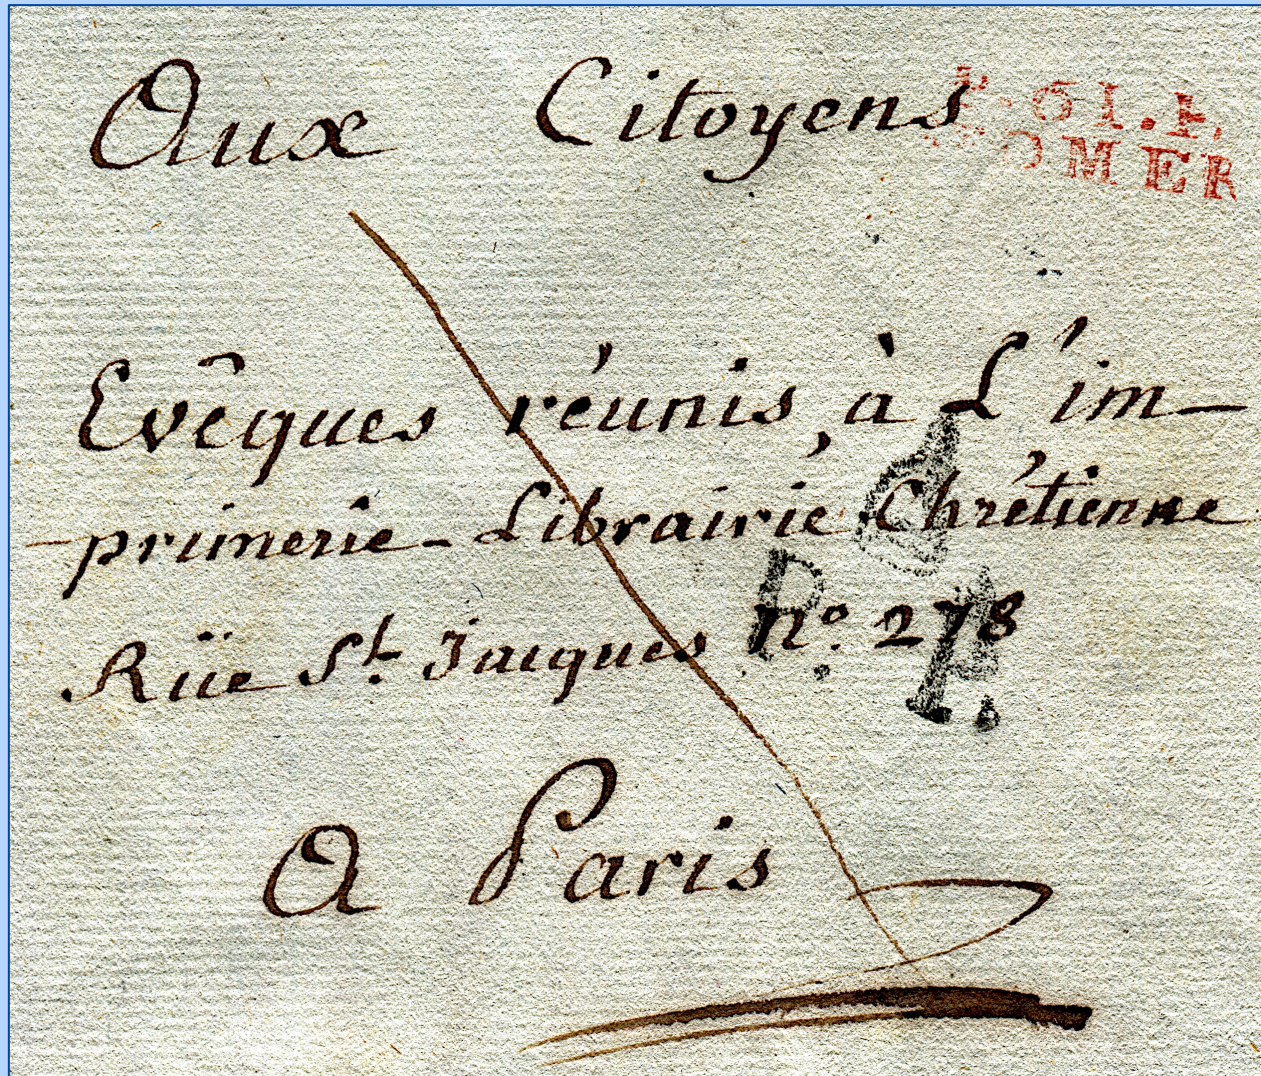 Aux Citoyens
P.61.P.
S.OMER
Evêques réunis, à L'im-
-primerie-Librairie Chrétienne
Rüe St. Jacques no. 278
P. P.
A Paris